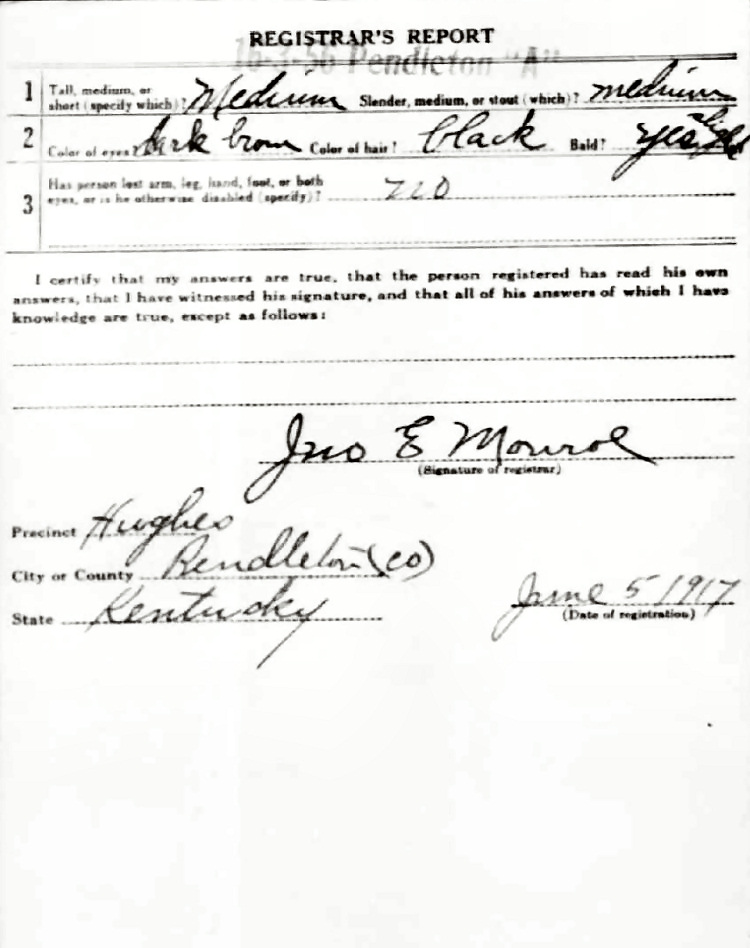 REGISTRAR'S REPORT
16-3-56 Pendleton "A"
1 Tall, medium, or short (specify which)? Medium Slender, medium, or stout (which)? medium
2 Color of eyes? dark brown Color of hair? black Bald? yes
3 Has person lost arm, leg, hand, foot, or both
eyes, or is he otherwise disabled (specify)? no
I certify that my answers are true, that the person registered has read his own
answers, that I have witnessed his signature, and that all of his answers of which I have
knowledge are true, except as follows:
Jno E Monroe
(Signature of registrar)
Precinct Hughes
City or County Pendleton (co)
State Kentucky June 5 1917
(Date of registration)